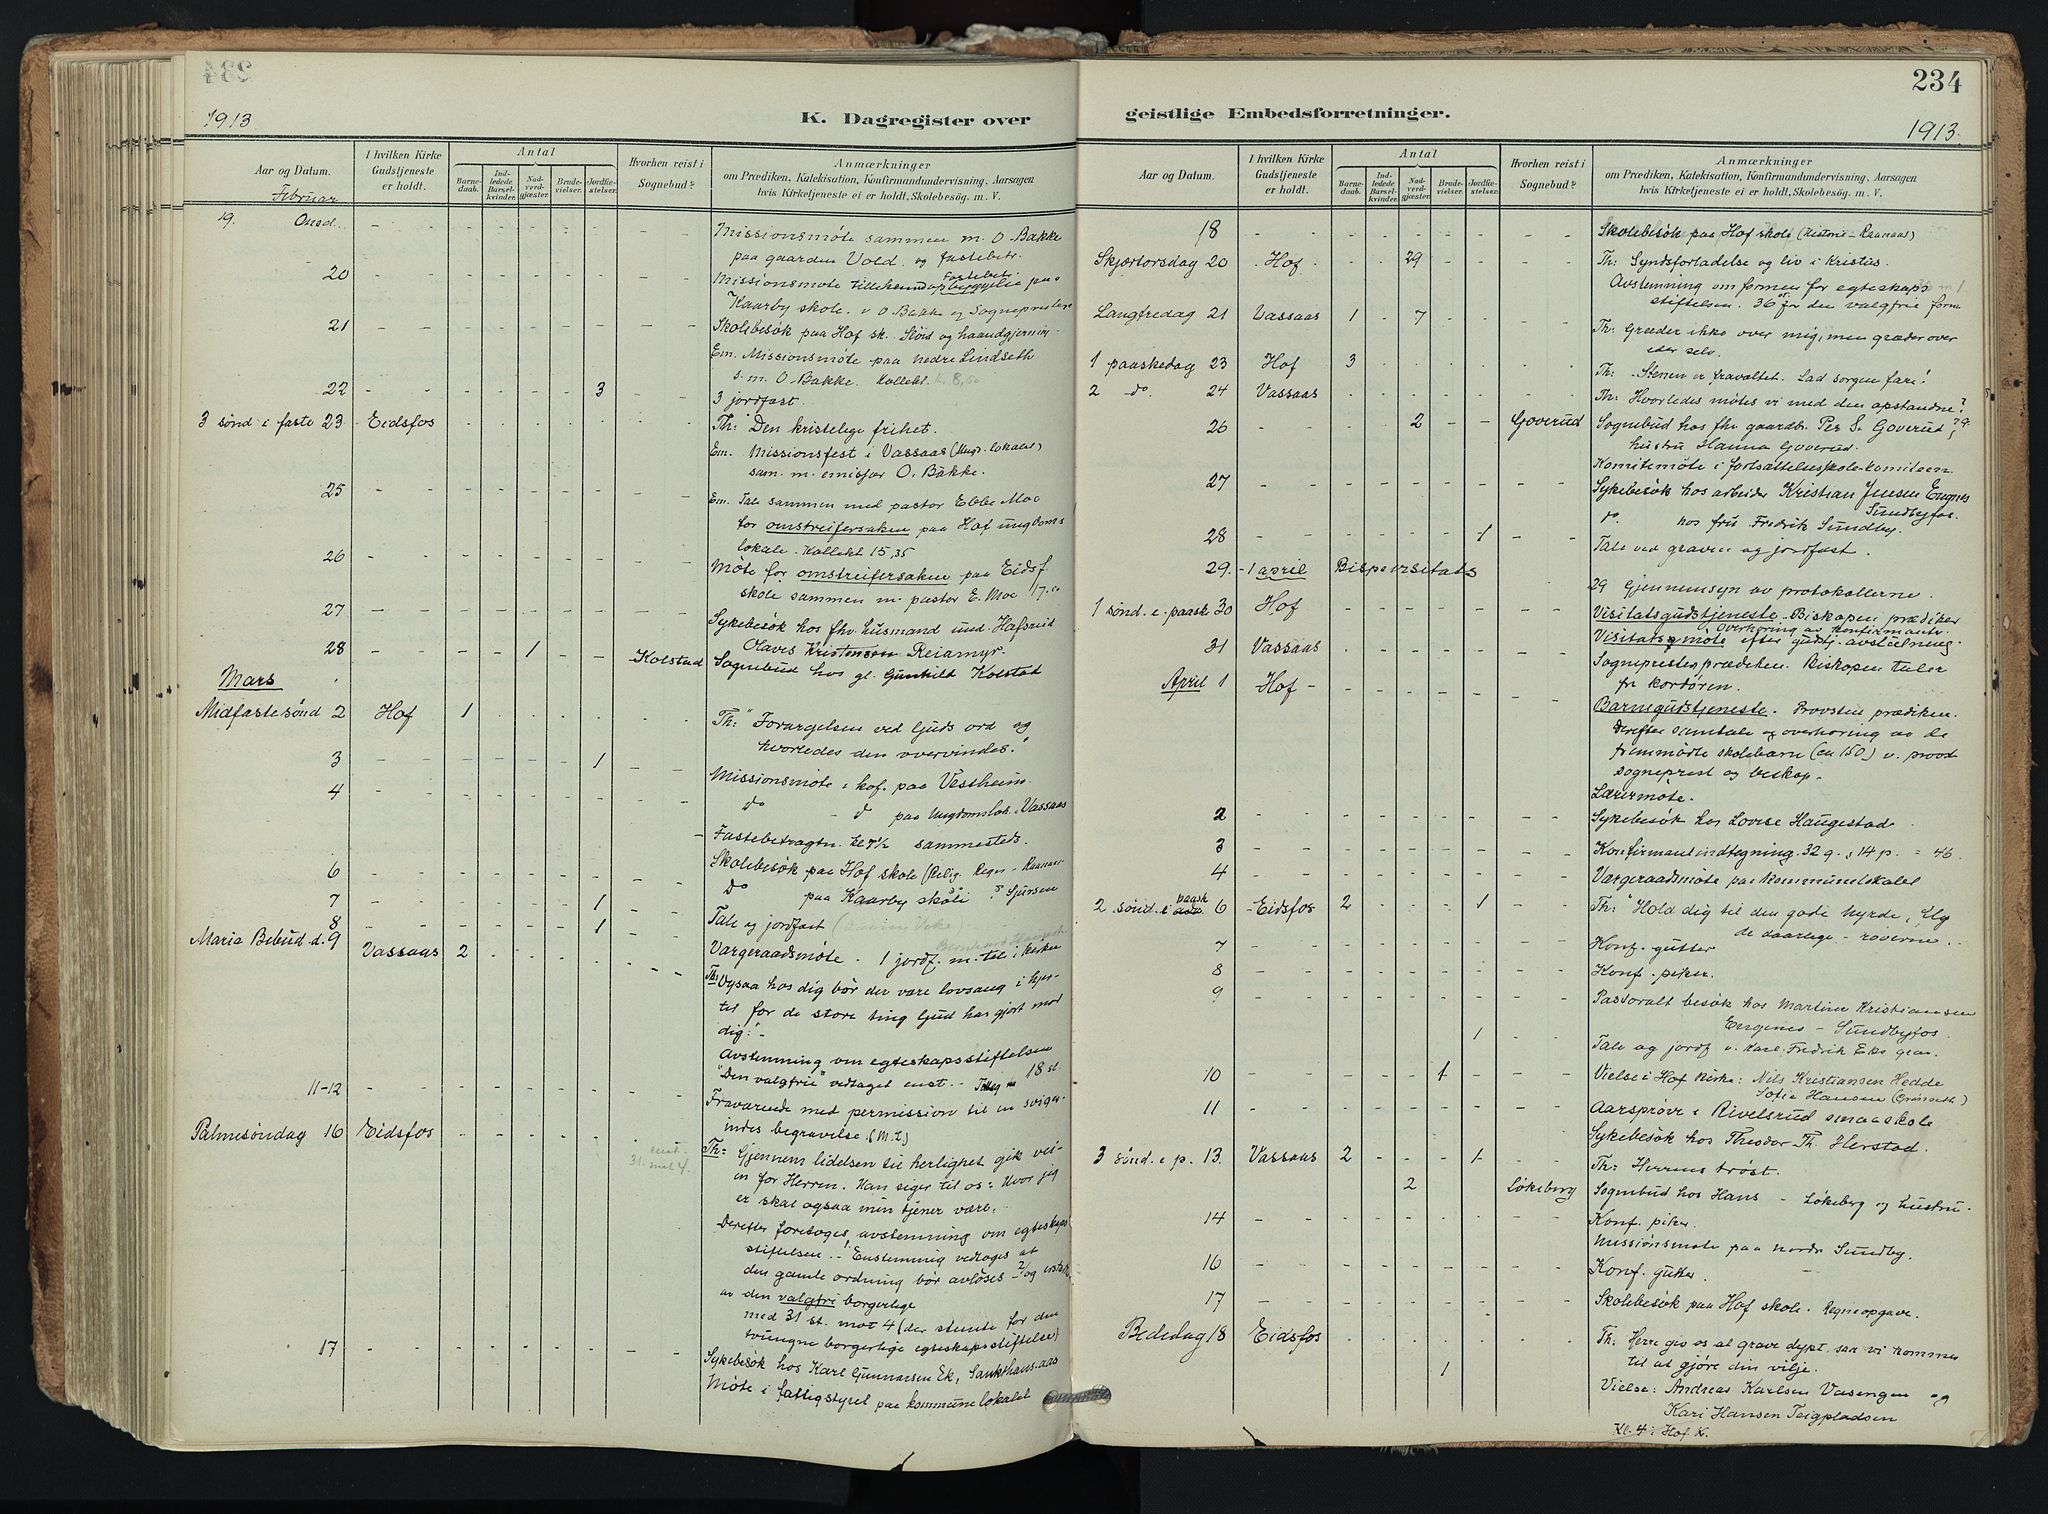 234
1913
K. Dagregister over
Aar og Datum.
I hvilken Kirke Gudstjeneste er holdt.
Antal
Barnedaab.
Indledede Barselkvinder.
Nadverdgjester.
Brudevielser.
Jordfæstelser.
Hvorhen reist i Sognebud?
Anmærkninger
om Prædiken, Katekisation, Konfirmandundervisning, Aarsagen
hvis Kirketjeneste ei er holdt, Skolebesøg. m. V.
Februar
19. Onsd. Missionsmøte sammen m. O. Bakke
paa gaarden Vold og fastebetr.
20 Missionsmøte Fastebetr. paa
Kaarby skole. v. O Bakke og Sognepresten
21 Skolebesøk paa Hof sk. Sløid og haandgjerning
Em. Missionsmøte paa nedre Lindseth
s. m. O Bakke. Kollekt. Kr. 8,50
22 3 3 jordfast.
3 sønd i faste 23 Eidsfos Th: Den kristelige frihet.
Em. Missionsfest i Vassaas (Ungd. lokalet)
sam. m. emissær O. Bakke.
25 Em. Tale sammen med pastor Ebbe Moe
for omstreifersaken paa Hof ungdoms
lokale. Kollekt 15,35
26 Møte for omstreifersaken paa Eidsf
skole sammen m. pastor E. Moe 17.00
27 Sykebesøk hos fhv. husmand und. Hafsrud
Olaves Kristensen Reiamyr.
28 1 Kolstad Sognebud hos gl. Gunhild Kolstad
Mars
Midfastesønd 2 Hof 1 Th: "Forargelsen ved Guds ord og
hvorledes den overvindes."
3 1 Missionsmøte i hof. paa Vestheim.
4 do d paa Ungdomslok. i Vassaas
Fastebetragtn. kl 7½ sammesteds.
6 Skolebesøk paa Hof skole (Relig. Regn - Raanaas
7 1 do paa Kaarby skole Sjursen
8 1 Tale og jordfast
Maria Bebud. d. 9 Vassaas 2 Vargeraadsmøte. 1 jordf. m. tel i kirken
Th: Ogsaa hos dig bør der være lovsang i hjer-
tet for de store ting Gud har gjort mot
dig!
Avstemning om egteskapsstiftelsen
"Den valgfrie" vedtaget enst. 18 st.
11-12 Fraværende med permission til en sviger-
indes begravelse. (M. L)
Palmesøndag 16 Eidsfos enst. 31 mot 4. Th: Gjennem lidelsen til herlighet gik vei-
en for Herren. Han siger til os: Hvor jeg
er skal ogsaa min tjener være.
Derefter foretoges avstemning om egteskaps
stiftelsen. Enstemmig vedtoges at
den gamle ordning bør avløses og erstattes
av den valgfri borgerlige
med 31 st. mot 4 (der stemte for den
tvungne borgerlige egteskapsstiftelse)
17 Sykebesøk hos Karl Gunnarsen Ek, Sankthansaas
Møte i fattigstyret paa kommunelokalet
234
geistlige Embedsforretninger.
1913.
Aar og Datum.
I hvilken Kirke Gudstjeneste er holdt.
Antal
Barnedaab.
Indledede Barselkvinder.
Nadverdgjæster.
Brudevielser.
Jordfæstelser.
Hvorhen reist i Sognebud?
Anmærkninger
om Prædiken, Katekisation, Konfirmandundervisning, Aarsagen
hvis Kirketjeneste ei er holdt, Skolebesøg. m. V.
18 Skolebesøk paa Hof skole (Historie - Raanaas)
Skjærtorsdag 20 Hof 29 Th: Syndsforladelse og liv i Kristus.
Avstemning om formen for egteskaps
stiftelsen. 36 st for den valgfrie form
Langfredag 21 Vassaas 1 7 Th: Græder ikke over mig, men græder over
eder selv.
1 paaskedag 23 Hof 3 Th: Stenen er fravæltet. Lad sorgen fare!
2 do. 24 Vassaas Th: Hvorledes møtes vi med den opstandne?
26 2 Goverud Sognebud hos fhv gaardbr. Per S. Goverud og
hustru Hanna Goverud.
Komitemøte i fortsættelsesskolekomiteen.
27 Sykebesøk hos arbeider Kristian Jensen Engnes
Sundbyfos.
do. hos fru Fredrik Sundby.
28 1 Tale ved graven og jordfast.
29. - 1 april Bispevisitats 29 Gjennemsyn av protokollerne.
1 sønd. e. paask 30 Hof Visitatsgudstjeneste. Biskopen prædiker
Overhøring av konfirmante.
Visitatsmøte efter gudstj. avslutning
31 Vassaas Sognepresten prædiken. Biskopen taler
fr kordøren.
April 1 Hof Barnegudstjeneste. Provsten prædiken.
Derefter samtale og overhøring av de
fremmøtte skolebarn (ca 150) v. provst
sogneprest og biskop.
Lærermøte.
2 Sykebesøk hos Lovise Haugestad
3 Konfirmandindtegning. 32 g. 14 p. = 46.
4 Vargeraadsmøte paa kommunelokalet
2 sønd. e paask 6 Eidsfos 2 1 Th: "Hold dig til den gode hyrde,
de daarlige - røverne.
7 Konf. gutter
8 Konf. piker.
9 Pastoralt besøk hos Martine Kristiansen
Engenes - Sundbyfos.
1 Tale og jordf v. Karl Fredrik Eks grav.
10 1 Vielse i Hof kirke: Nils Kristiansen Hedde
Sofie Hansen (Grønseth)
11 Aarsprøve i Rivelsrud smaaskole
Sykebesøk hos Theodor Th. Herstad.
3 sønd. e p. 13. Vassaas 2 1 Th: Herrens trøst.
2 Løkeberg Sognebud hos Hans - Løkeberg og hustru.
14 Konf. piker.
Missionsmøte paa nordr Sundby.
16 Konf. gutter.
17 Skolebesøk paa Hof skole. Regneopgave.
Bededag 18 Eidsfos Th: Herre giv os at grave dypt saa vi kommer
til at gjøre din vilje.
1 Vielse: Andreas Karlsen Vasengen og
Kari Hansen Teigpladsen
Kl. 4 i Hof K.